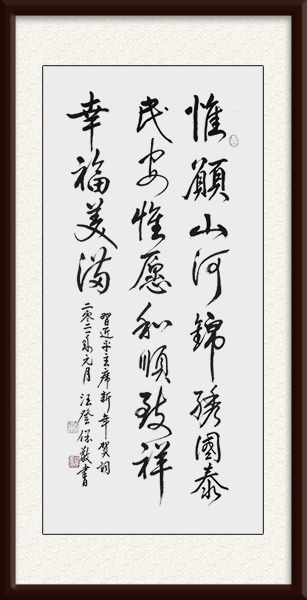 惟願山河錦繡國泰
民安惟愿和順致祥
幸福美滿
習近平主席新年賀詞
二零二一年元月汪登保敬書